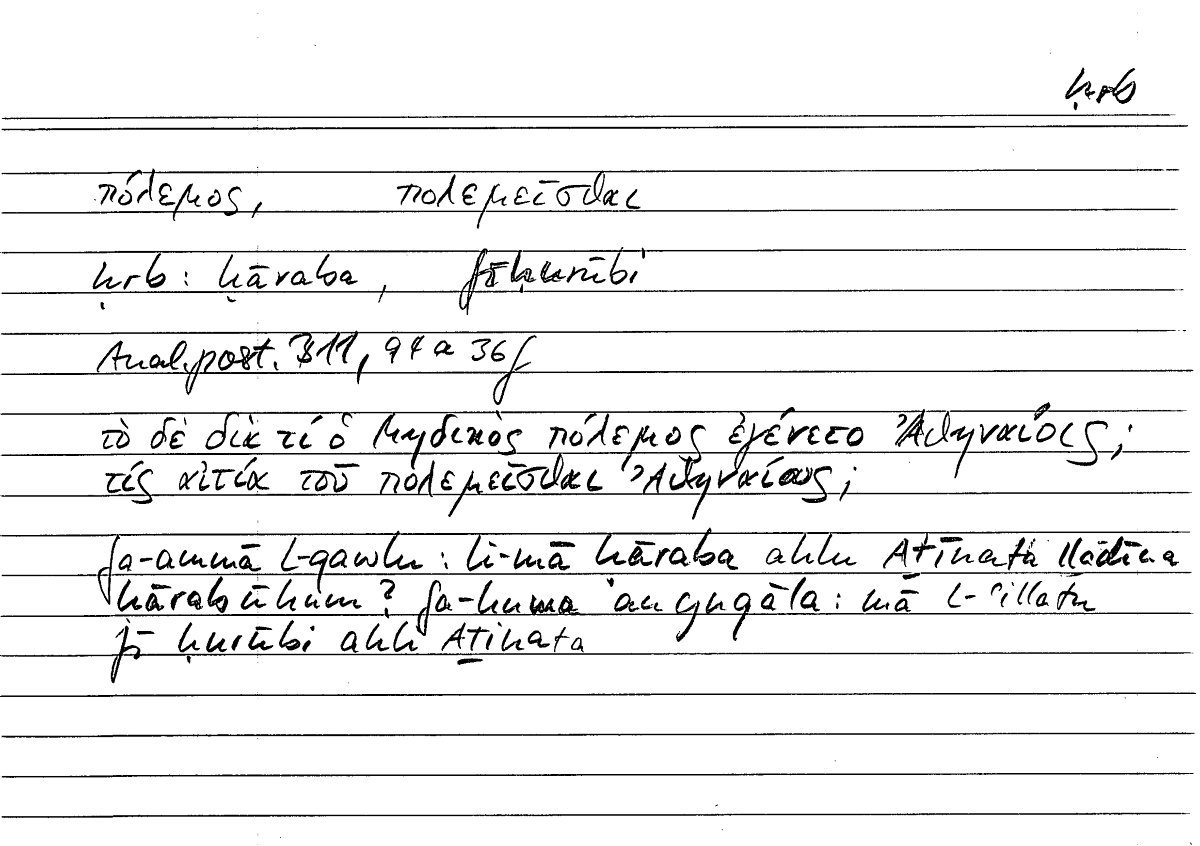 ḥrb
πόλεμος, πολεμεῖσθαι
ḥrb : ḥāraba, fī ḥurūbi
Anal. post. B 11, 94 a 36 f
τὸ δὲ διὰ τί ὁ Μηδικὸς πόλεμος ἐγένετο Ἀθηναίοις;
τίς αἰτία τοῦ πολεμεῖσθαι Ἀθηναίους;
fa-ammā l-qawlu : li-mā ḥāraba ahlu Aṯīnata lladīna
ḥārabūhum? fa-huwa 'an yuqāla : mā l-ʿillatu
fī ḥurūbi ahli Aṯīnata